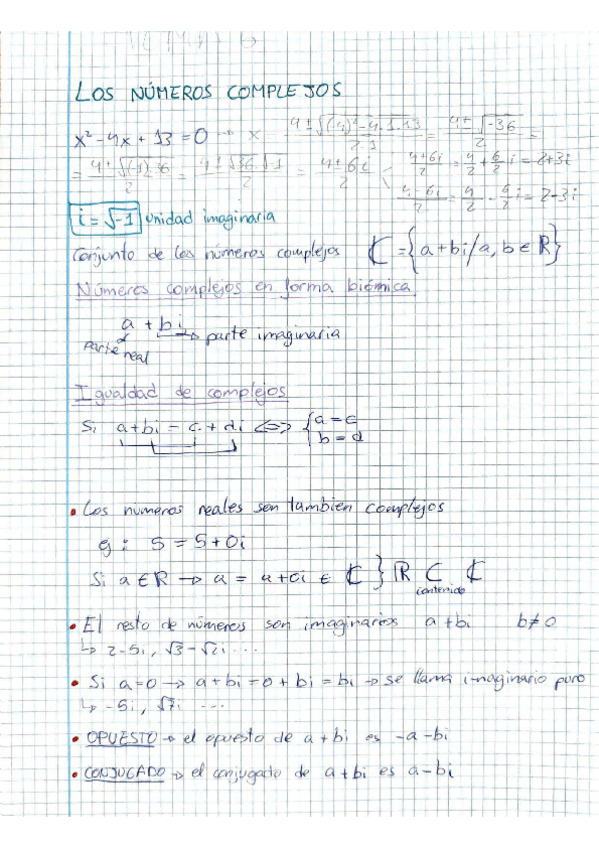 LOS NÚMEROS COMPLEJOS
x² - 4x + 13 = 0 → x = (4 ± √((-4)² - 4·1·13))/(2·1) = (4 ± √-36)/2 =
= (4 ± √((-1)·36))/2 = (4 ± √36·√-1)/2 = (4 ± 6i)/2 < (4+6i)/2 = 4/2 + 6/2 i = 2+3i
(4-6i)/2 = 4/2 - 6/2 i = 2-3i
i = √-1 unidad imaginaria
Conjunto de los números complejos ℂ = {a + bi / a, b ∈ ℝ}
Números complejos en forma biómica
a + bi → parte imaginaria
parte real
Igualdad de complejos
Si a+bi = c + di ⟺ { a = c
b = d
• Los numeros reales son tambien complejos
g: 5 = 5 + 0i
Si a ∈ ℝ → a = a + 0i ∈ ℂ } ℝ ⊂ ℂ
contenido
• El resto de números son imaginarios a + bi b ≠ 0
↳ 2-5i, √3 - √2i ...
• Si a=0 → a + bi = 0 + bi = bi → se llama imaginario puro
↳ -5i, √7i ...
• OPUESTO → el opuesto de a + bi es -a - bi
• CONJUCADO → el conjugado de a + bi es a - bi